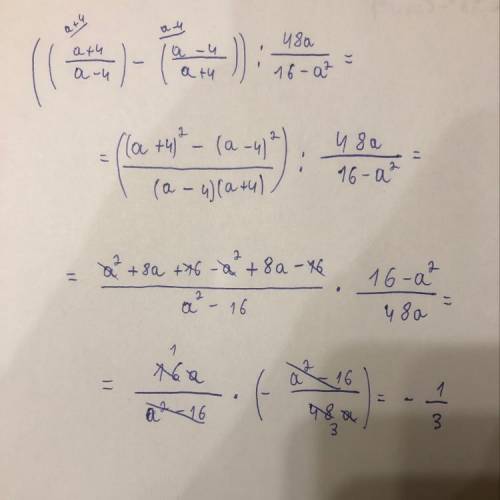 ((a+4/a-4)^(a+4) - (a-4/a+4)^(a-4)) : 48a/16-a² =
= ((a+4)² - (a-4)²/(a-4)(a+4)) : 48a/16-a² =
= a² + 8a + 16 - a² + 8a - 16/a² - 16 · 16-a²/48a =
= 1 16a/a²-16 · (- a²-16/48a 3) = - 1/3